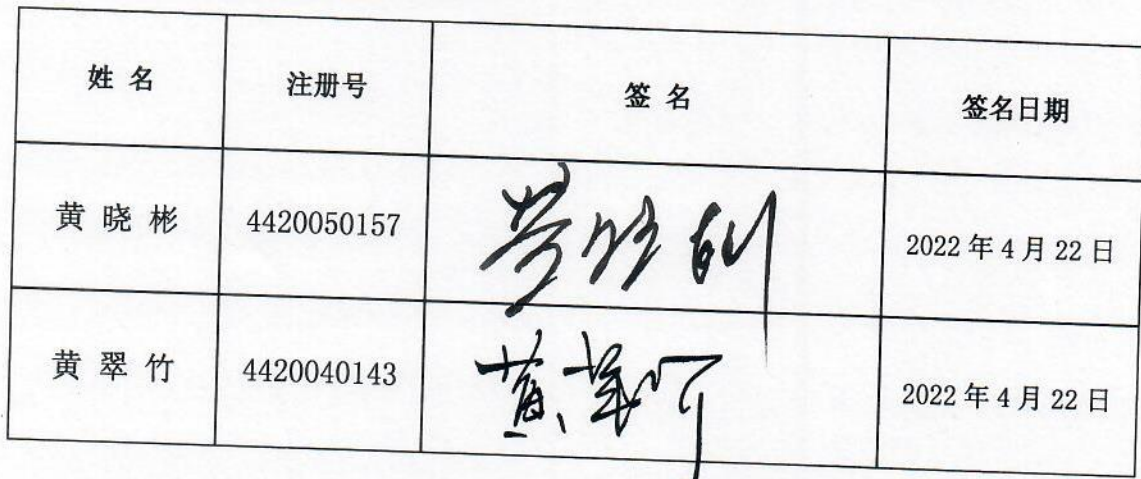 姓 名 注册号 签 名 签名日期
黄 晓 彬 4420050157 2022 年 4 月 22 日
黄 翠 竹 4420040143 黄翠竹 2022 年 4 月 22 日